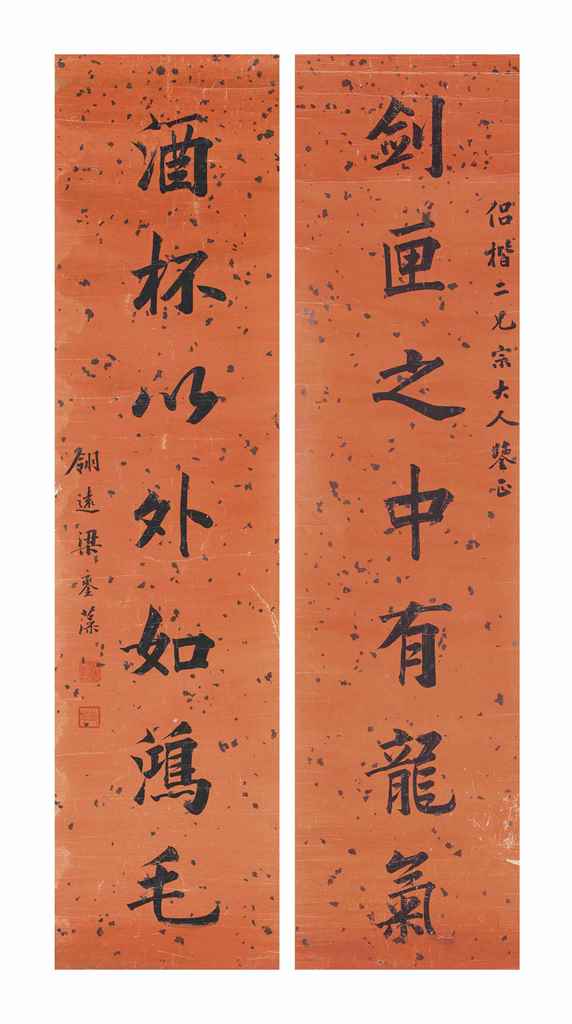 侣楷二兄宗大人鑒正
剑匣之中有龍氣
酒杯以外如鴻毛
翎遠梁鋆藻